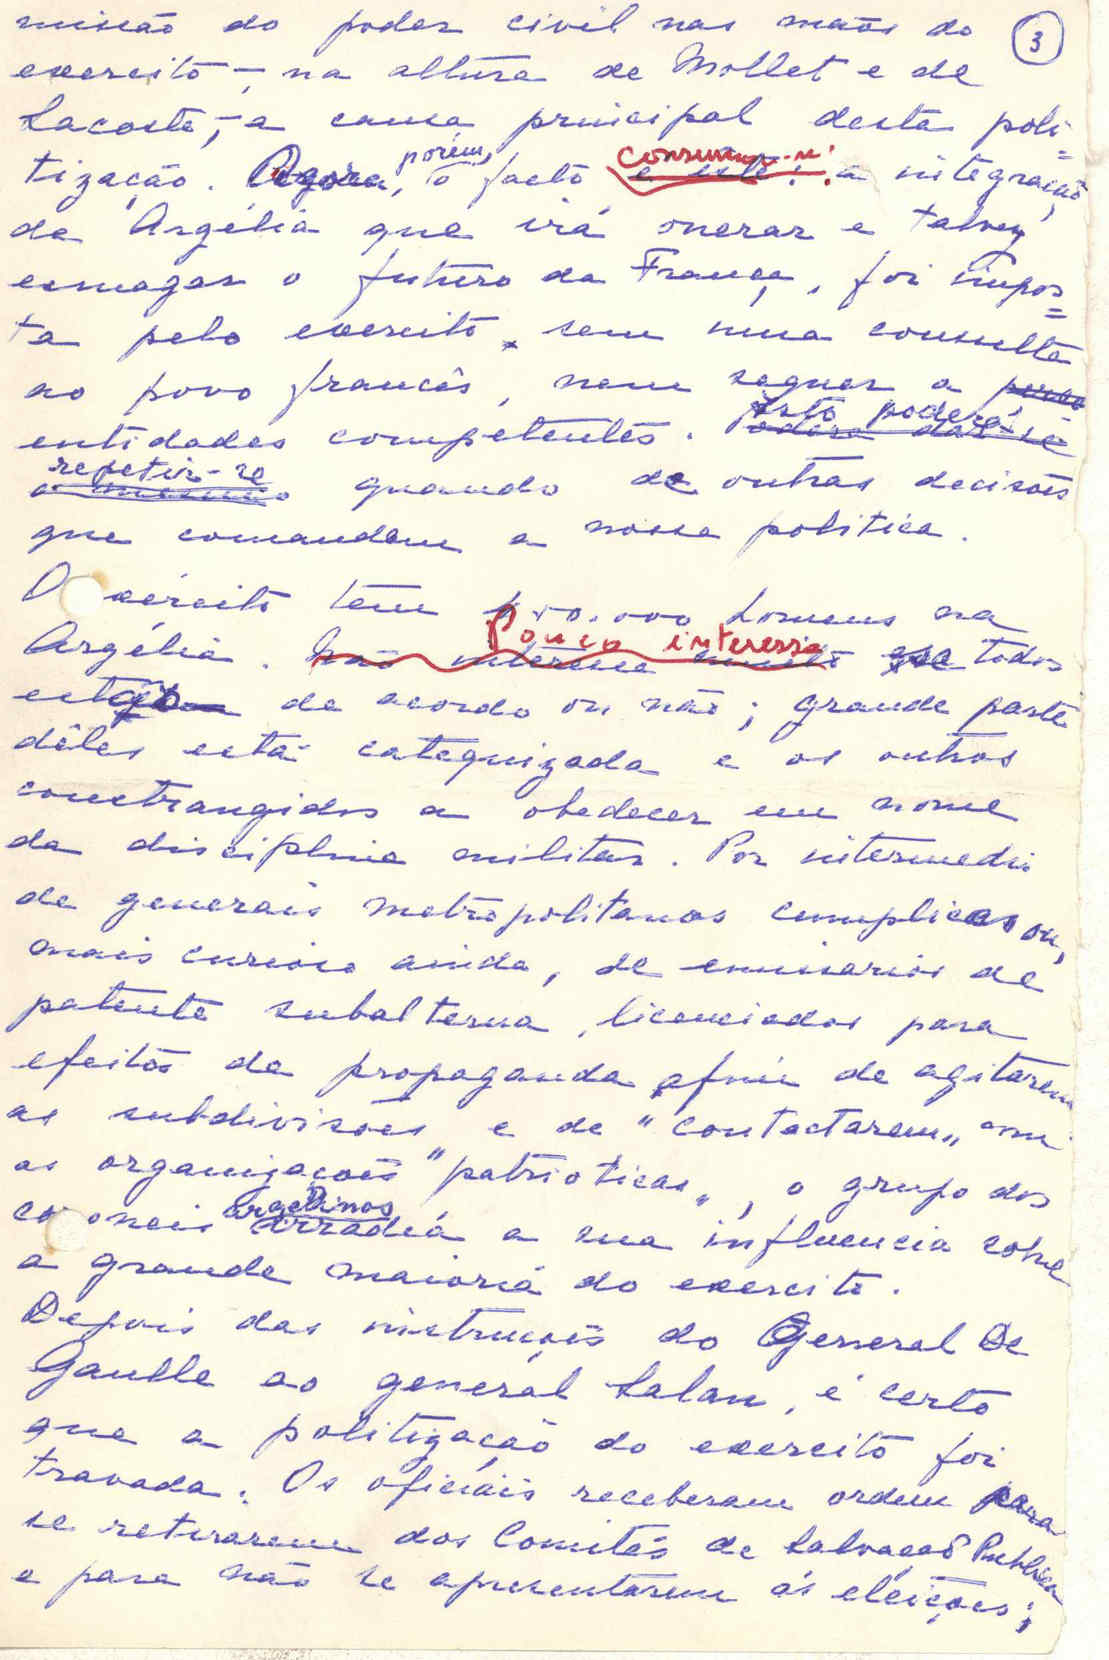 missão do poder civil nas mãos do
3
exercito —, na altura de Mollet e de
Lacoste, — a causa principal desta poli=
tização. Agora, porém, o facto consumou-se: a integração
da Argélia que irá onerar e talvez
esmagar o futuro da França, foi impos=
ta pelo exercito, sem uma consulta
ao povo francês, nem sequer a
entidades competentes. Isto poderá
repetir-se quando de outras decisões
que comandam a nossa politica.
O exército tem 400.000 homens na
Argélia. Pouco interessa se todos
estão de acordo ou não; grande parte
dêles está catequizada e os outros
constrangidos a obedecer em nome
da disciplina militar. Por intermedio
de generais metropolitanos cumplices ou,
mais curioso ainda, de emissarios de
patente subalterna, licenciados para
efeitos de propaganda afim de agitarem
as subdivisões e de "contactarem" com
as organizações "patrioticas", o grupo dos
coroneis argelinos irradia a sua influencia sobre
a grande maioria do exercito.
Depois das instruções do General De
Gaulle ao general Salan, é certo
que a politização do exercito foi
travada. Os oficiais receberam ordem para
se retirarem dos Comités de Salvação Publica
e para não se apresentarem ás eleições;